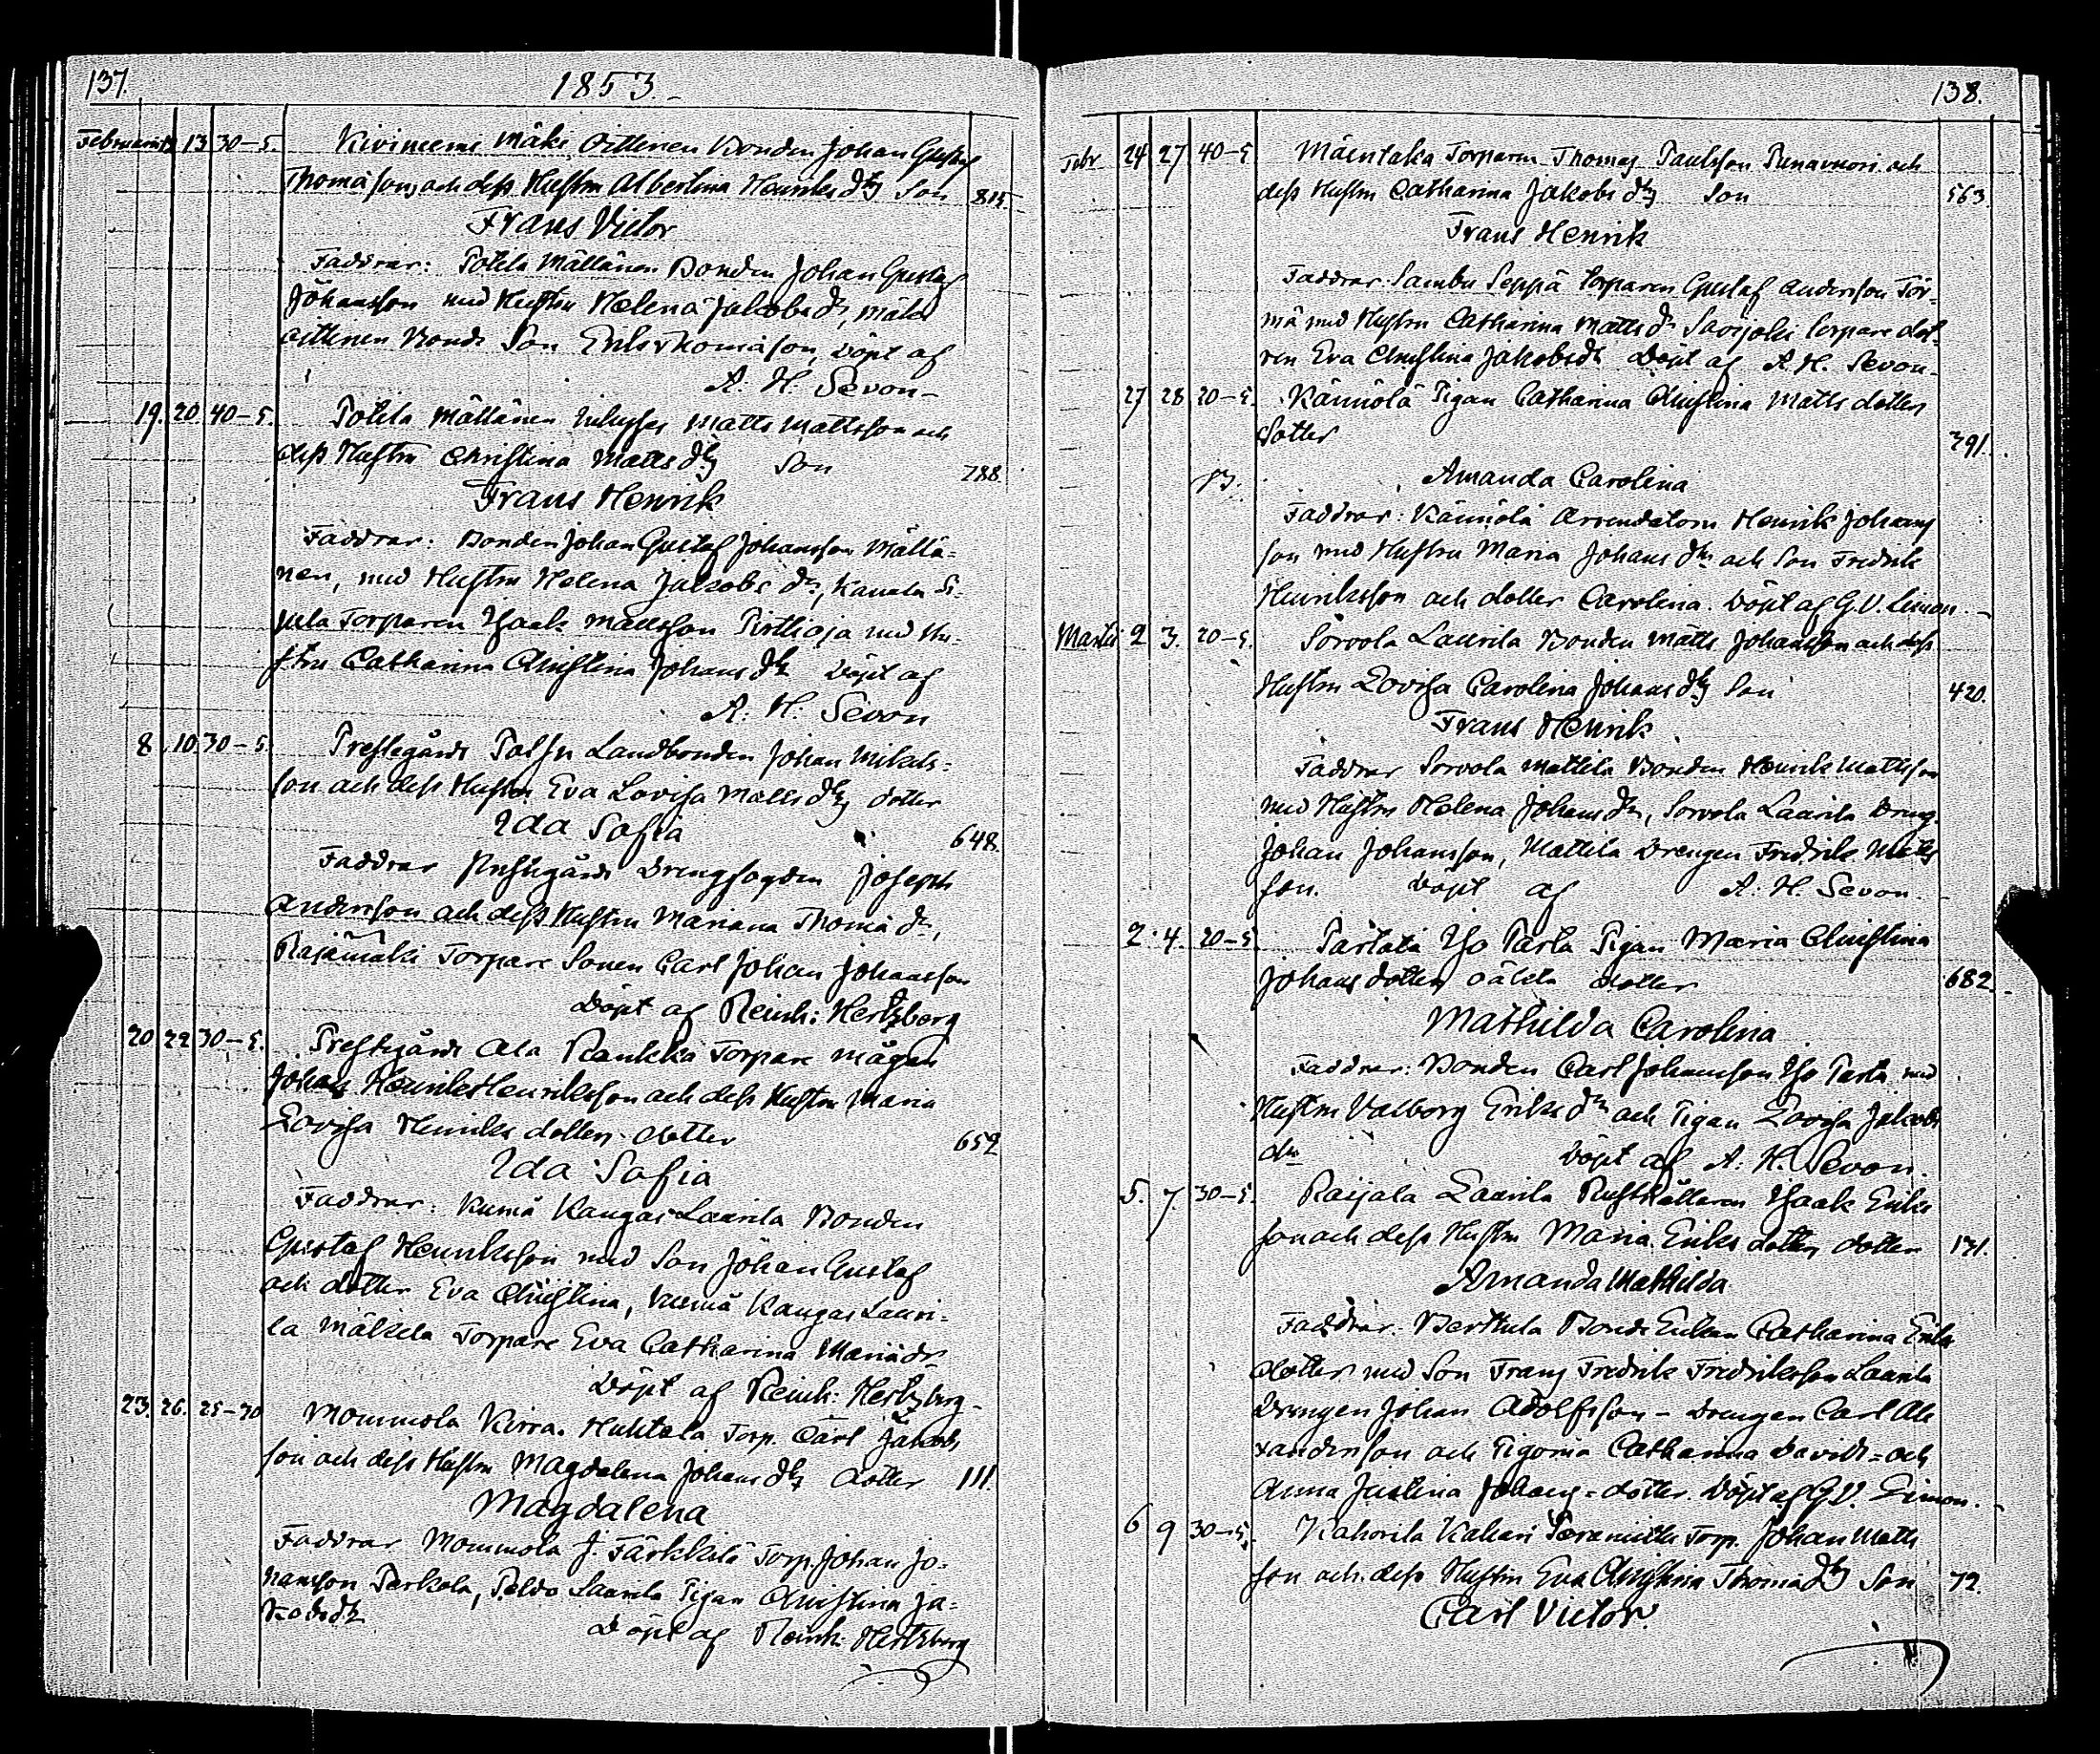 137.
1853.
Februarii 12 13 30-5. Kiviniemi Mäki Oittinen Bonden Johan Gustaf
Thomasson, och dess Hustru Albertina Henriks dtr Son 815.
Frans Victor
Faddrar: Potila Mällänen Bonden Johan Gustaf
Johansson med Hustru Helena Jakobs dr, Mäki
Oittinen Bonde Son Erik Thomasson, Döpt af
A. H. Sevon-
19. 20 40-5. Potila Mällänen Matts Mattsson och
dess Hustru Christina Matts dtr Son 788.
Frans Henrik
Faddrar: Bonden Johan Gustaf Johansson Mällä-
nen, med Hustru Helena Jakobs dr,
Torparen Isaak Mattsson med Hu-
stru Catharina Christina Johans dtr Döpt af
A. H. Sevon
8 10 30-5. Prestegårds Landbonden Johan Mikels-
son och dess Hustru Eva Lovisa Matts dtr dotter
Ida Sofia 648.
Faddrar Prestegårds Drengfogden Joseph
Andersson och dess Hustru Mariana Thoma dr,
Rajamäki Torpare Sonen Carl Johan Johansson
Döpt af Reinh: Hertzberg
20 22 30-5. Prestegårds Ala Raukka Torpare mågen
Johan Henrik Henriksson och dess Hustru Maria
Lovisa Henriks dotter dotter 652
Ida Sofia
Faddrar: Kumä Kangas Laurila Bonden
Gustaf Henriksson med Son Johan Gustaf
och dotter Eva Christina, Kumä Kangas Lauri-
la Mäkelä Torpare Eva Catharina
Döpt af Reinh: Hertzberg-
23. 26. 25-30 Mommola Kirra Huhtala Torp. Carl Jakobs
son och dess Hustru Magdalena Johans dtr dotter 111.
Magdalena
Faddrar Mommola J. Färkkilä Torp. Johan Jo-
hansson Perkola, Peldo Laurila Pigan Christina Ja-
kobs dtr
Döpt af Reinh: Hertzberg
138.
Febr 24 27 40-5 Mäentaka Torparen Thomas Paulsson Punavuori och
dess Hustru Catharina Jakobs dtr Son 563
Frans Henrik
Faddrar: Sambu Seppä Torparen Gustaf Andersson Tör-
mä med Hustru Catharina Matts dr Savijoki torpare dot-
ren Eva Christina Jakobs dtr Döpt af A. H. Sevon-
27 28 20-5. Kännölä Pigan Catharina Christina Matts dotters
dotter 391.
Amanda Carolina
Faddrar: Kännölä Arrendatorn Henrik Johans
son med Hustru Maria Johans dtr och Son Fredrik
Henriksson och dotter Carolina. Döpt af G. V. Limon.
Martii 2 3. 20-5. Sorvola Laurila Bonden Matts Johansson och dess
Hustru Lovisa Carolina Johans dtr Son 420.
Frans Henrik
Faddrar Sorvola Mattila Bonden Henrik Mattsson
med Hustru Helena Johans dtr, Sorvola Laurila Dreng.
Johan Johansson, Mattila Drengen Fredrik Matts
son. Döpt af A. H. Sevon.
2 4. 20-5 Iso Pärtä Pigan Maria Christina
Johans dotters oäkta dotter 682.
Mathilda Carolina
Faddrar: Bonden Carl Johansson Iso Pärtä med
Hustru Valborg Eriks dtr och Pigan Lovisa Jakobs
dtr Döpt af A. H. Sevon.
5. 7. 30-5. Raijala Laurila Rusthållaren Isaak Eriks
son och dess Hustru Maria Eriks dotters dotter 131.
Amanda Mathilda
Faddrar: Berthula Bonde Enkan Catharina Eriks
dotter med Son Frans Fredrik Fredriksson Laurila
Drengen Johan Adolfsson - Drengen Carl Ale
xandersson och Pigorna Catharina Davids- och
Anna Justina Johans-dotter. Döpt af G. V. Limon.
6 9 30-5. Kahorila Torp. Johan Matts
son och dess Hustru Eva Christina Thoma dtr Son 72.
Carl Victor.